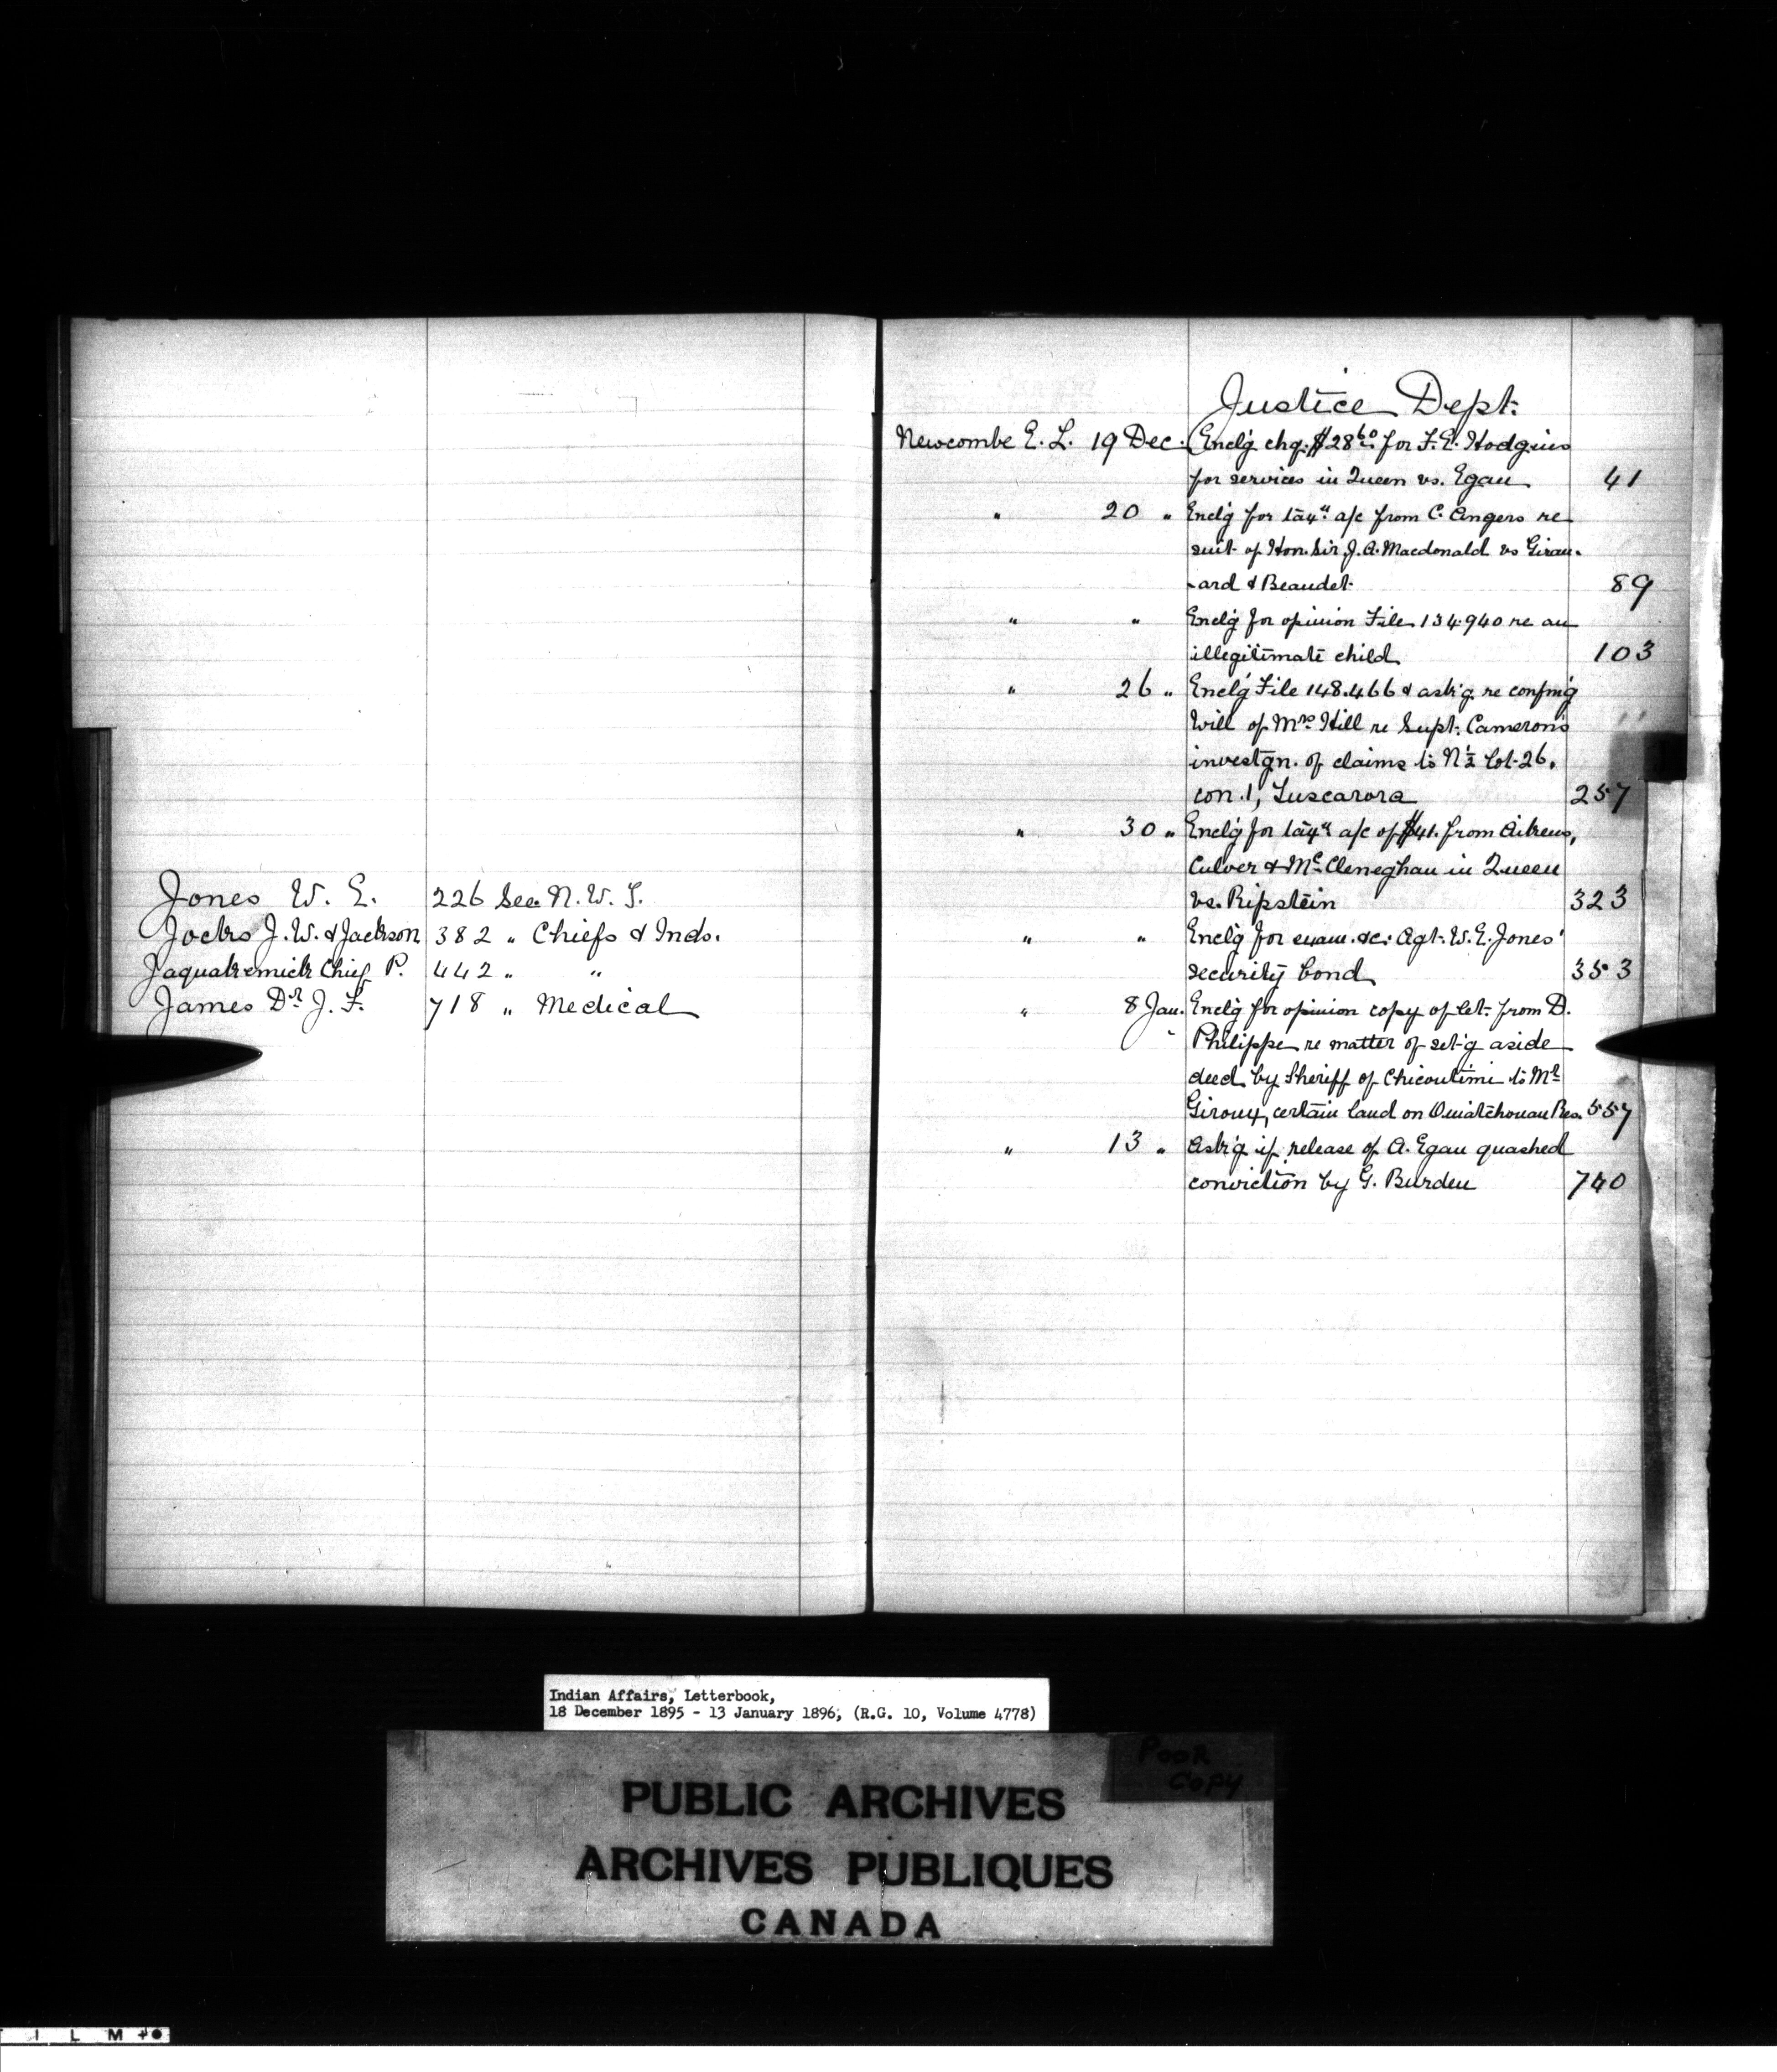 Jones W. E. 226 See N. W. T.
Jocks J. W. & Jackson 382 " Chiefs & Inds.
Jaquakemick Chief P. 442 " "
James Dr. J. F. 718 " Medical
Justice Dept.
Newcombe E. L. 19 Dec. Encl'g chq. $28 60 for F. E. Hodgins
for services in Queen vs. Egan 41
" 20 " Encl'g for tax'n a/c from C. Angers re
suit of Hon. Sir J. A. Macdonald vs Girou-
-ard & Beaudet 89
" " Encl'g for opinion File 134.940 re an
illegitimate child 103
" 26 " Encl'g File 148.466 & ask'g re confmg
Will of Mrs. Hill re Supt. Cameron's
investgn. of claims to N ½ Lot 26,
con. 1, Tuscarora 257
" 30 " Encl'g for tax'n a/c of $41. from Aikens,
Culver & McCleneghan in Queen
vs. Ripstein 323
" " Encl'g for exam. &c. Agt. W. E. Jones'
security bond 353
" 8 Jan. Encl'g for opinion copy of let. from D.
Philippe re matter of set'g aside
deed by Sheriff of Chicoutimi to Mr.
Giroux, certain land on Ouiatchouan Res. 557
" 13 " Ask'g if release of A. Egan quashed
conviction by G. Burden 740
Indian Affairs, Letterbook,
18 December 1895 - 13 January 1896, (R.G. 10, Volume 4778)
POOR
COPY
PUBLIC ARCHIVES
ARCHIVES PUBLIQUES
CANADA
I L M